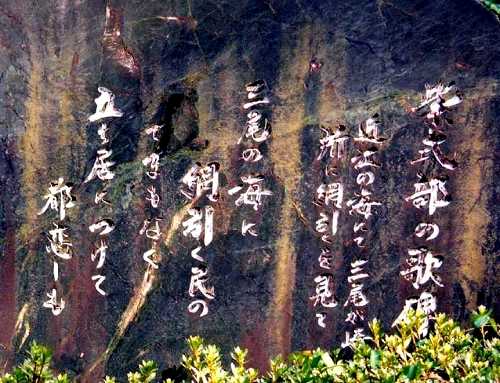 紫式部の歌碑
近江の海にて三尾が崎
に網引くを見て
三尾の海に
網引く民の
てまもなく
立ち居につけて
都恋しも